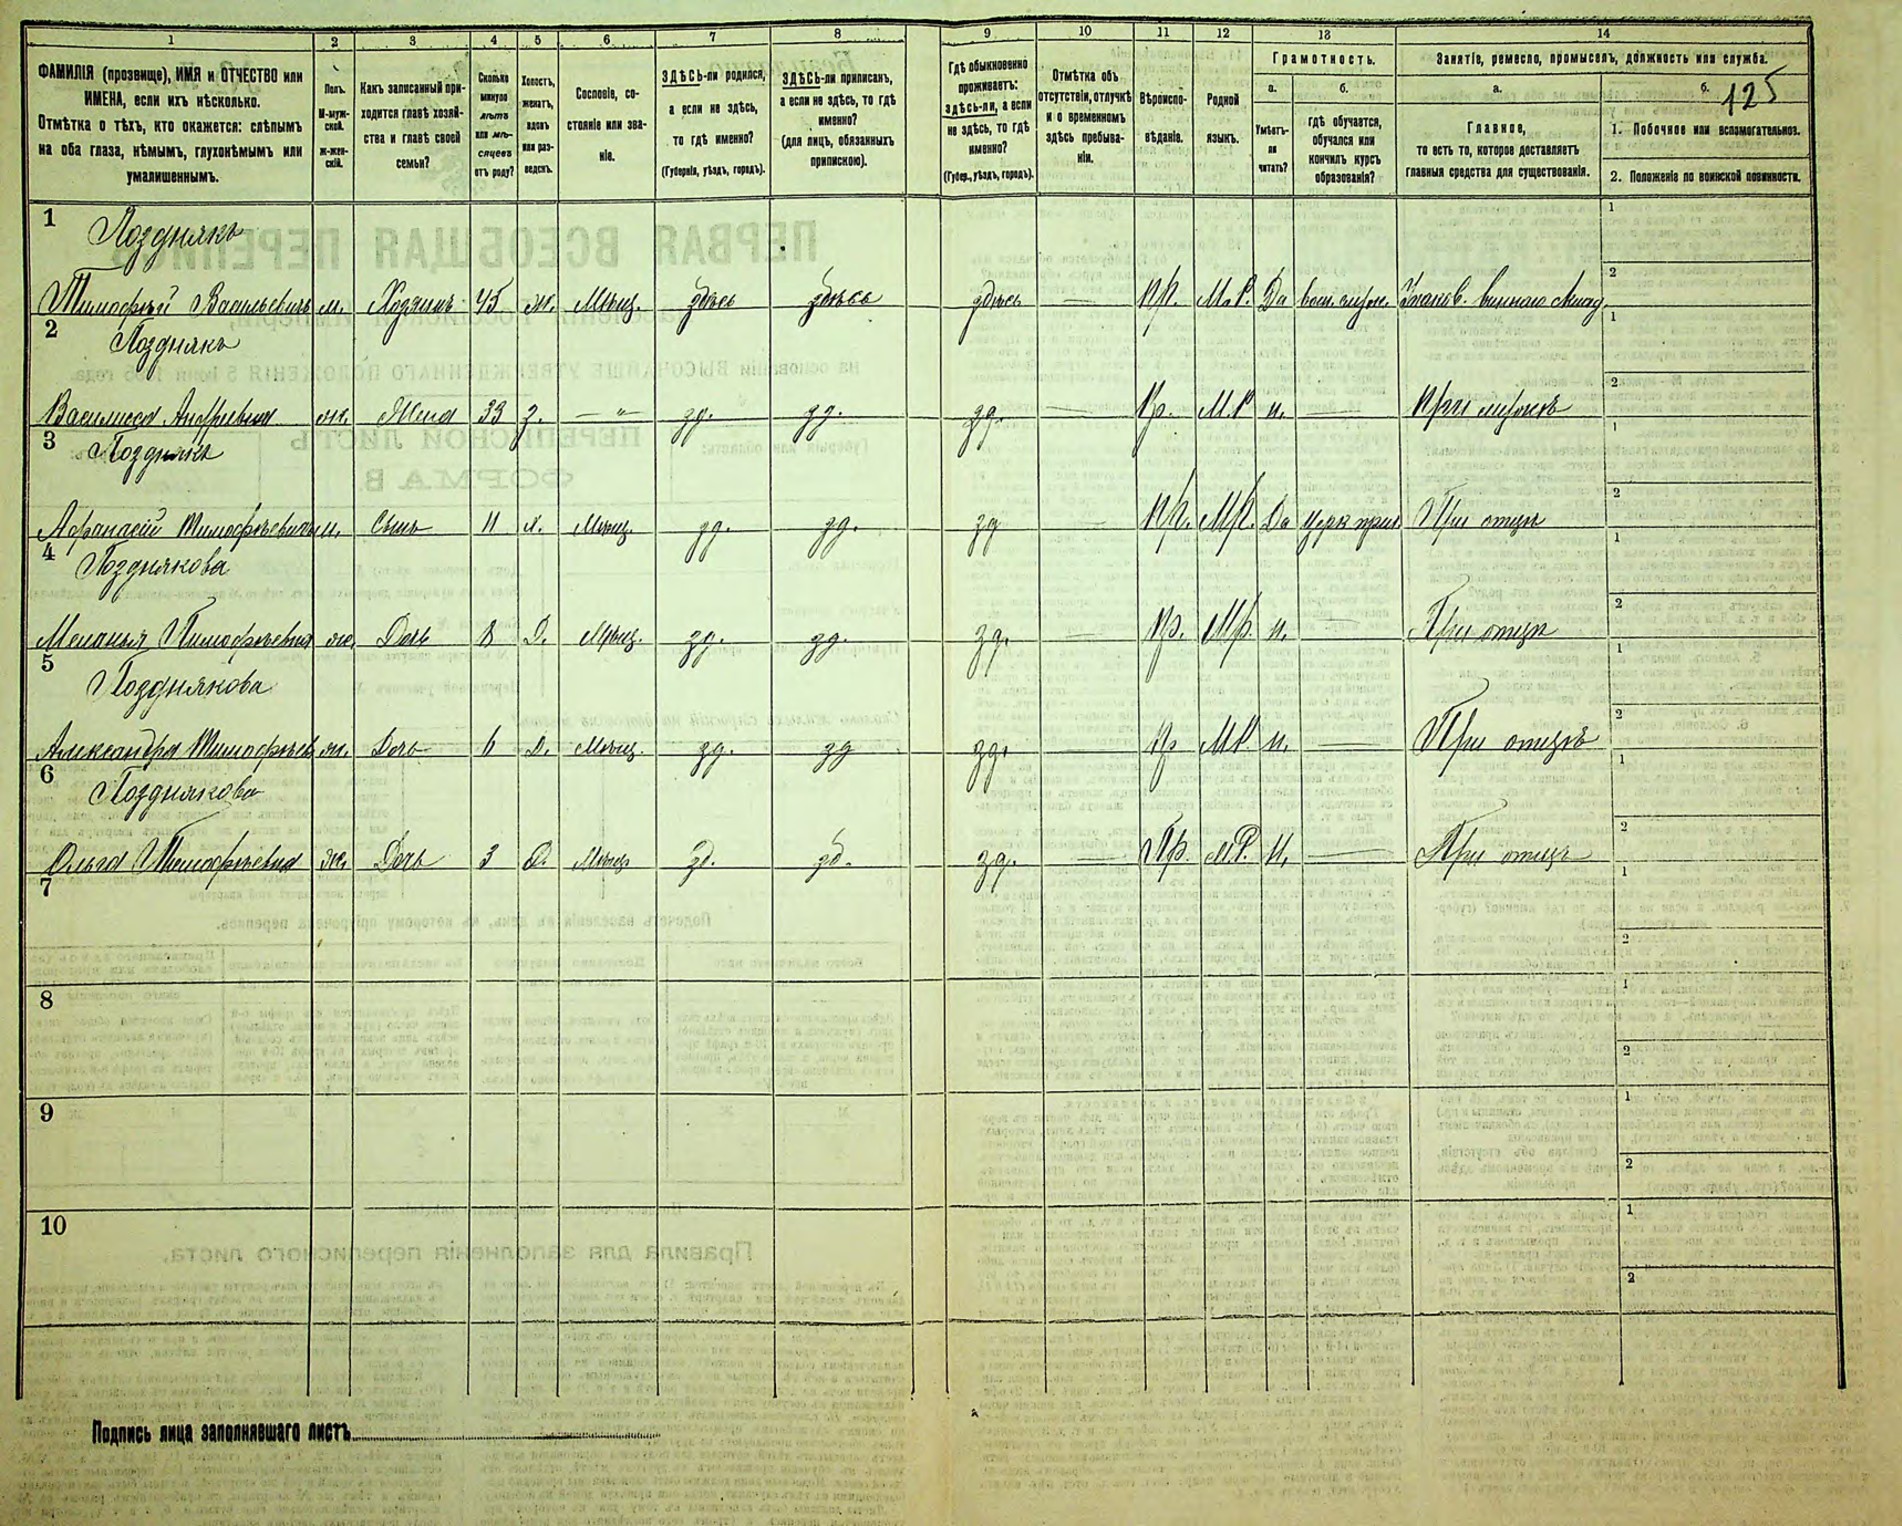 1 2 3 4 5 6 7 8 9 10 11 12 13 14
ФАМИЛІЯ (прозвище), ИМЯ и ОТЧЕСТВО или
ИМЕНА, если ихъ нѣсколько.
Отмѣтка о тѣхъ, кто окажется: слѣпымъ
на оба глаза, нѣмымъ, глухонѣмымъ или
умалишеннымъ.
Полъ.
М-муж-
ской.
Ж-жен-
скій.
Какъ записанный при-
ходится главѣ хозяй-
ства и главѣ своей
семьи?
Сколько
минуло
лѣтъ
или мѣ-
сяцевъ
отъ роду?
Холостъ,
женатъ,
вдовъ
или раз-
веденъ.
Сословіе, со-
стояніе или зва-
ніе.
ЗДѢСЬ-ли родился,
а если не здѣсь,
то гдѣ именно?
(Губернія, уѣздъ, городъ).
ЗДѢСЬ-ли приписанъ,
а если не здѣсь, то гдѣ
именно?
(для лицъ, обязанныхъ
припискою).
Гдѣ обыкновенно
проживаетъ:
здѣсь-ли, а если
не здѣсь, то гдѣ
именно?
(Губер., уѣздъ, городъ).
Отмѣтка объ
отсутствіи, отлучкѣ
и о временномъ
здѣсь пребыва-
ніи.
Вѣроиспо-
вѣданіе.
Родной
языкъ.
Грамотность.
а. б.
Умѣетъ-
ли
читать?
гдѣ обучается,
обучался или
кончилъ курсъ
образованія?
Занятіе, ремесло, промыселъ, должность или служба.
а. б. 125
Главное,
то есть то, которое доставляетъ
главныя средства для существованія.
1. Побочное или вспомогательное.
2. Положеніе по воинской повинности.
1 Позднякъ 1
2
Тимофѣй Васильевичъ м. Хозяинъ 45 ж. Мѣщ. здѣсь здѣсь здѣсь — Пр. М.Р. Да
2 Позднякъ 1
2
Василиса Андреевна ж. Жена 33 з. — " — зд. зд. зд. Пр. М.Р. н. — При мужѣ
3 Позднякъ 1
2
Афанасій Тимофѣевичъ м. Сынъ 11 х. Мѣщ. зд. зд. зд — Пр. М.Р. Да При отцѣ
4 Позднякова 1
2
Меланья Тимофѣевна ж. Дочь 8 Д. Мѣщ. зд. зд. зд. — Пр. М.р. н. — При отцѣ
5 Позднякова 1
2
Александра Тимофѣев ж. Дочь 6 Д. Мѣщ. зд. зд зд. — Пр М.Р. н. — При отцѣ
6 Позднякова 1
2
Ольга Тимофѣевна ж. Дочь 3 Д. Мѣщ зд. зд. зд. — Пр. М.Р. н. — При отцѣ
7 1
2
8 1
2
9 1
2
10 1
2
Подпись лица заполнявшаго листъ